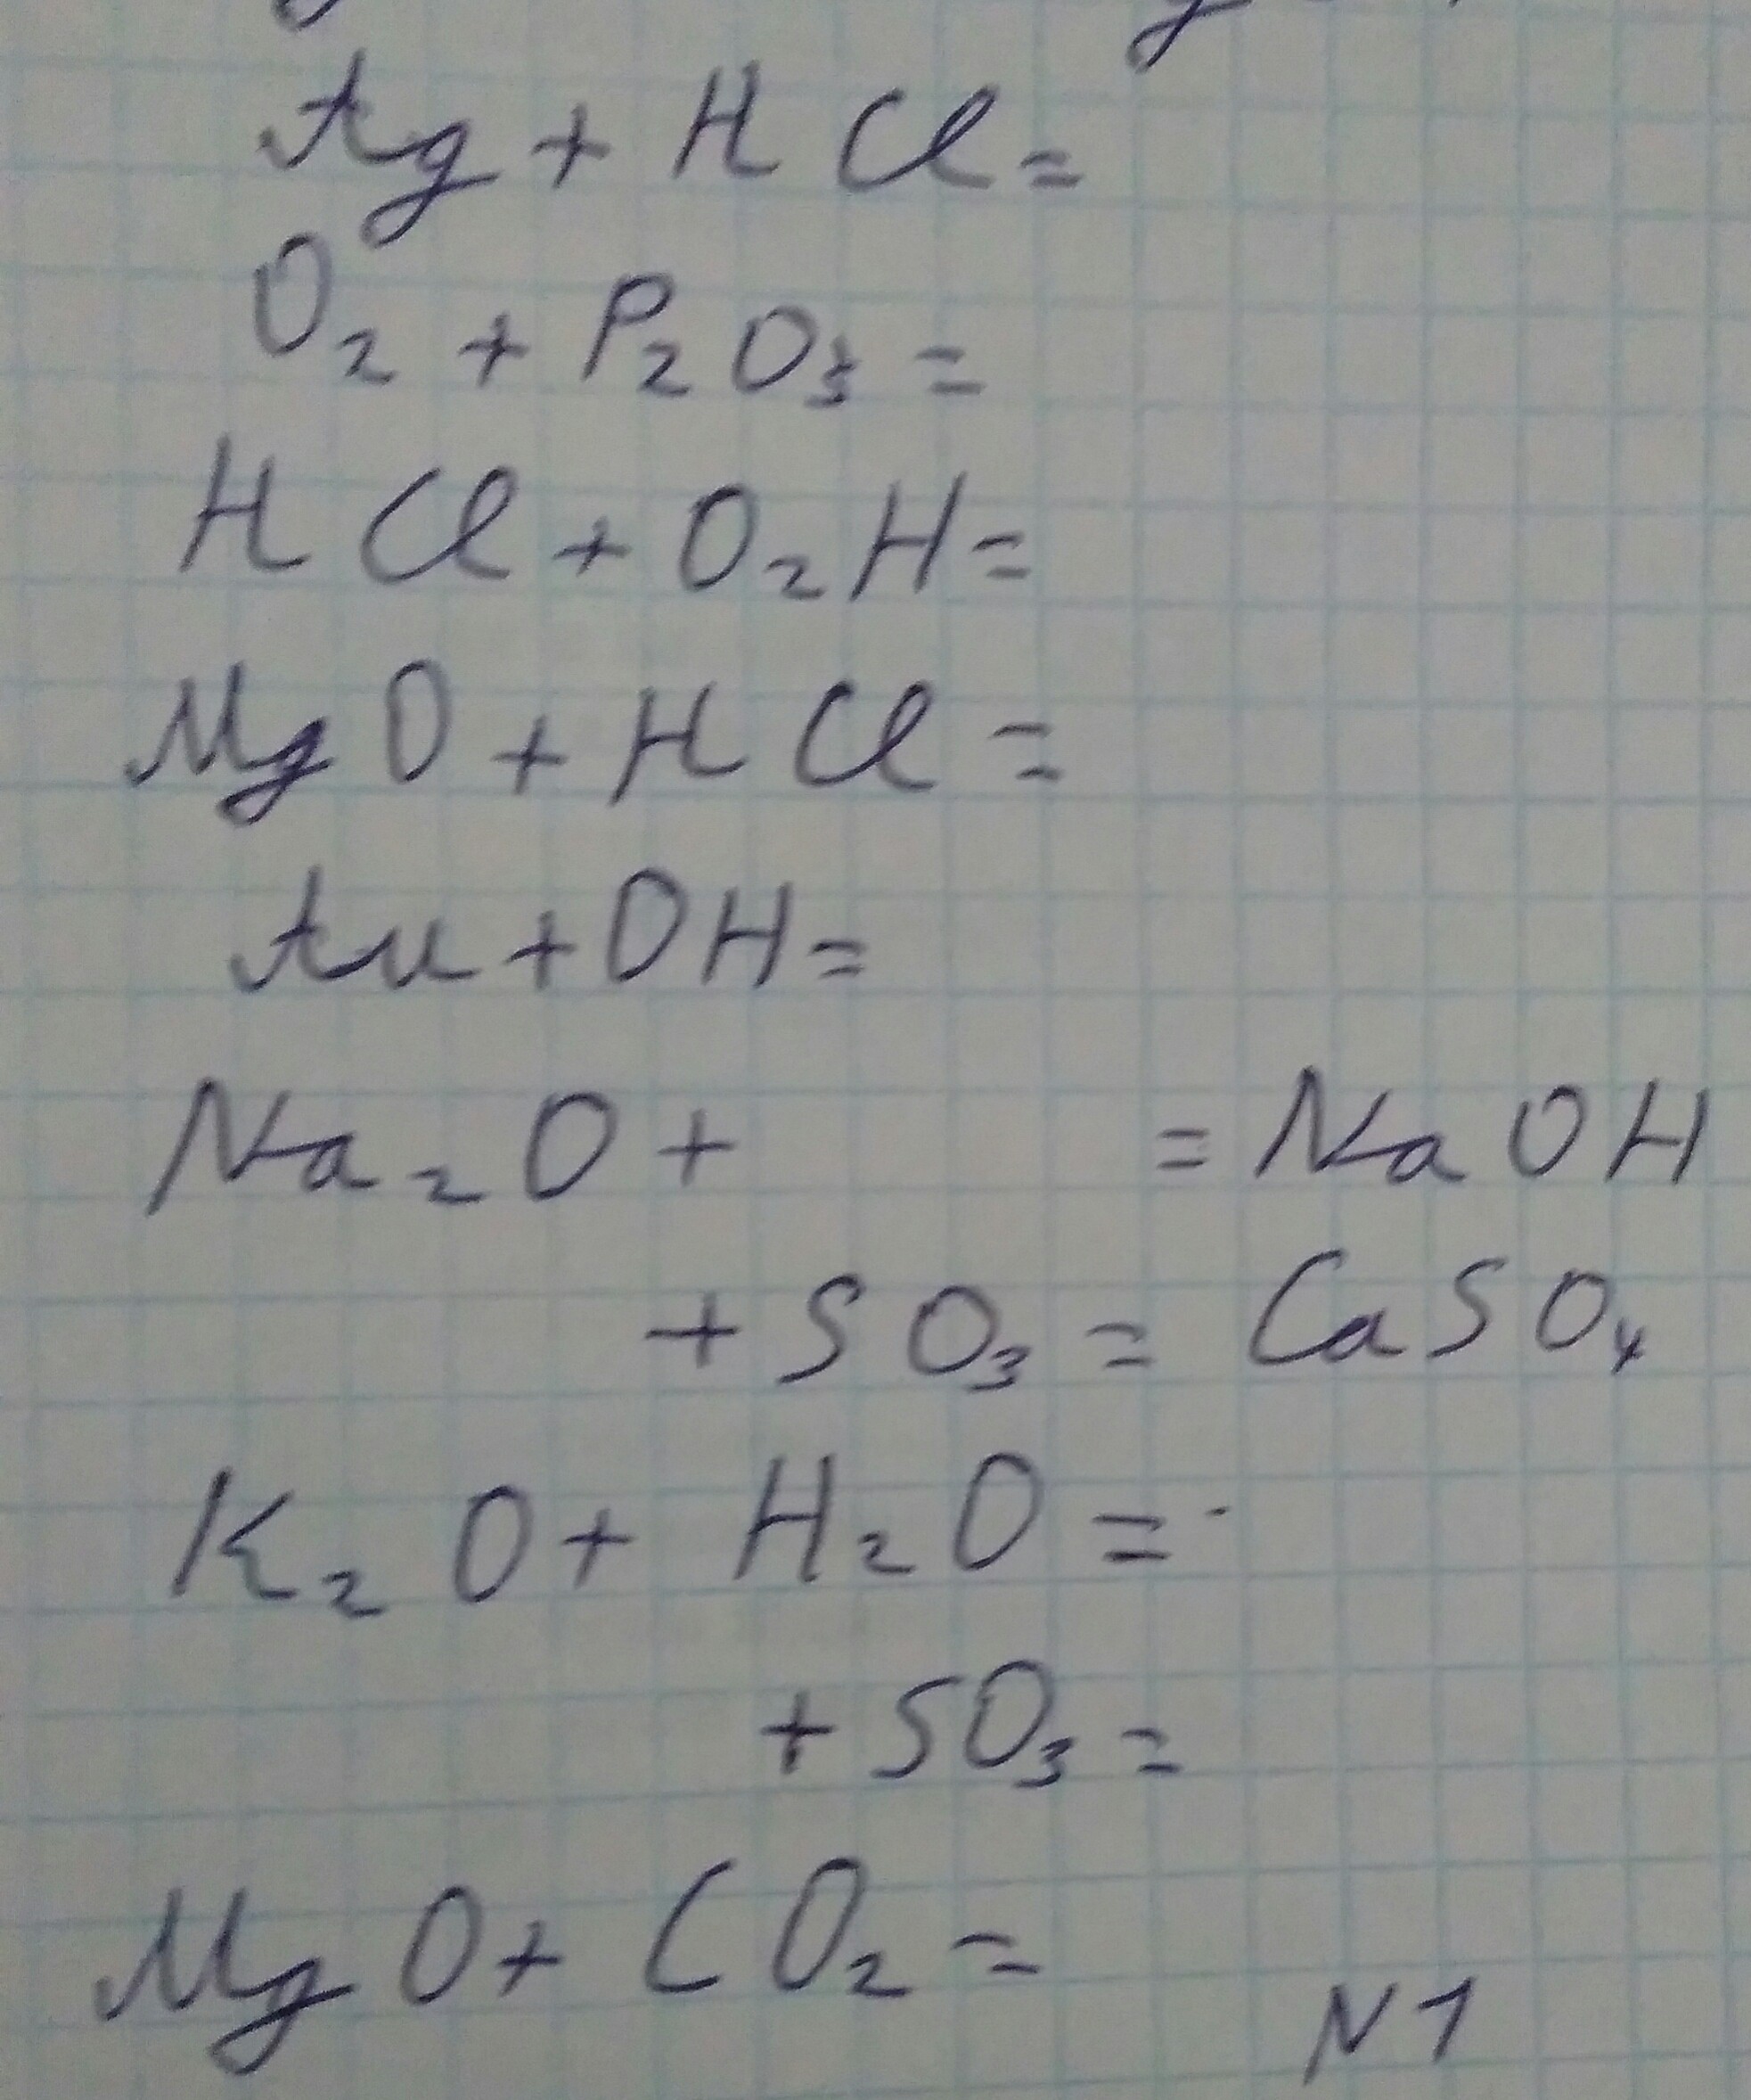 Ag + HCl =
O₂ + P₂O₅ =
HCl + O₂H =
MgO + HCl =
Au + OH =
Na₂O + = NaOH
+ SO₃ = CaSO₄
K₂O + H₂O =
+ SO₃ =
MgO + CO₂ =
N1